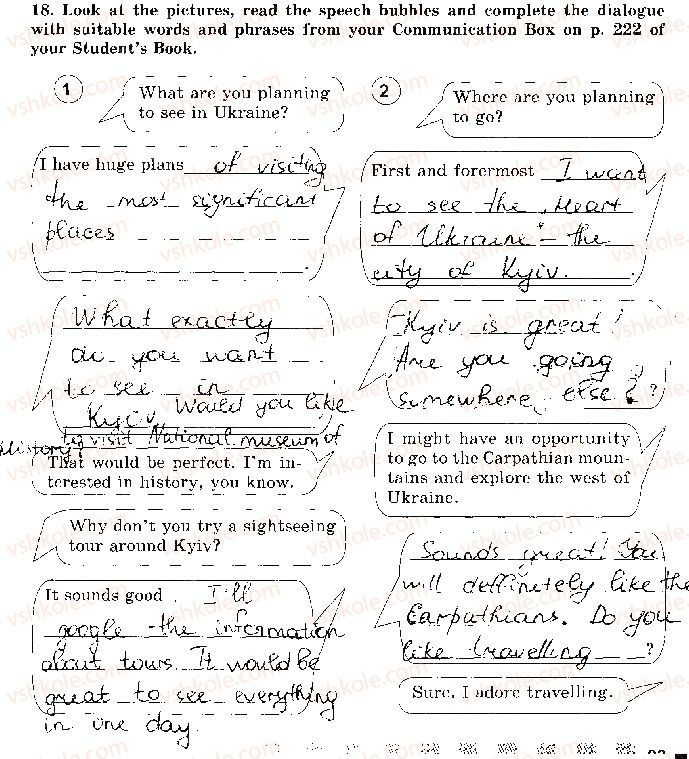 18. Look at the pictures, read the speech bubbles and complete the dialogue
with suitable words and phrases from your Communication Box on p. 222 of
your Student's Book.
1
What are you planning
to see in Ukraine?
I have huge plans of visiting
the most significant
places
What exactly
do you want
to see in
Kyiv Would you like
to visit National museum of
History?
That would be perfect. I'm in-
terested in history, you know.
Why don't you try a sightseeing
tour around Kyiv?
It sounds good. I'll
google the information
about tours. It would be
great to see everything
in one day
2
Where are you planning
to go?
First and forermost I want
to see the "Heart
of Ukraine" - the
city of Kyiv.
Kyiv is great!
Are you going
somewhere else??
I might have an opportunity
to go to the Carpathian moun-
tains and explore the west of
Ukraine.
Sounds great! You
will deffinetely like the
Carpathians. Do you
like travelling ?
Sure. I adore travelling.
vshkole.com